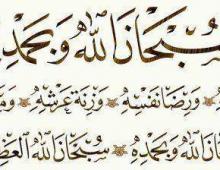 سُبْحَانَ اللهِ وَبِحَمْدِهِ
وَرِضَا نَفْسِهِ وَزِنَةَ عَرْشِهِ
اللهِ وَبِحَمْدِهِ سُبْحَانَ اللهِ